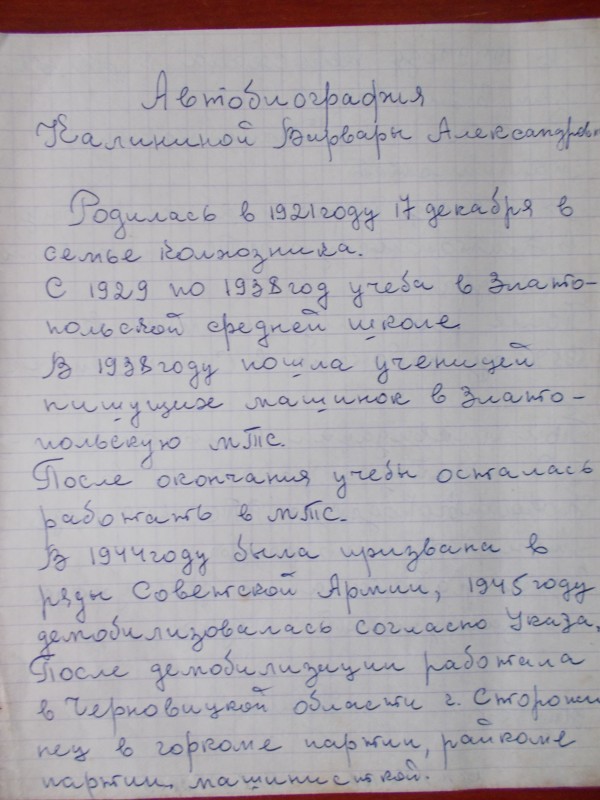 Автобиография
Калининой Варвары Александровн
Родилась в 1921 году 17 декабря в
семье колхозника.
С 1929 по 1938 год учеба в Злато-
польской средней школе
В 1938 году пошла ученицей
пишущих машинок в Злато-
польскую МТС.
После окончания учебы осталась
работать в МТС.
В 1944 году была призвана в
ряды Советской Армии, 1945 году
демобилизовалась согласно Указа,
После демобилизации работала
в Черновицкой области г. Сторожи
нец в горкоме партии, райкоме
партии, машинисткой.